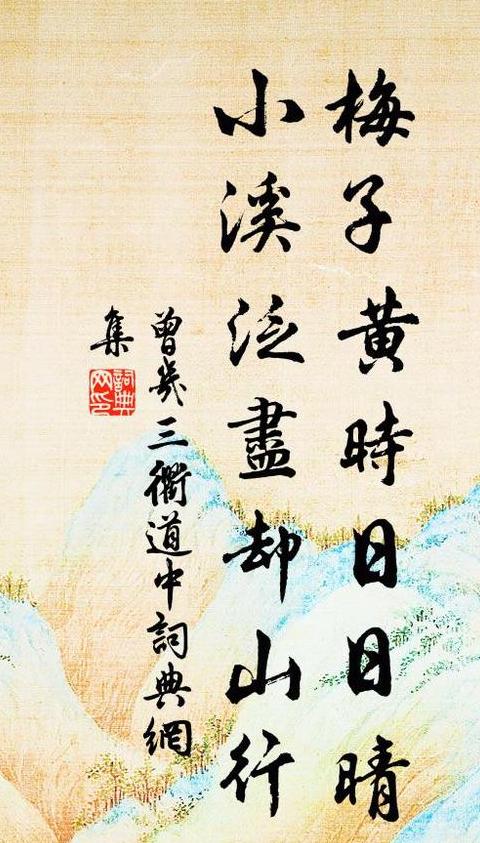 梅子黄時日日晴
小溪泛盡却山行
曾幾三衢道中詞典網
集
詞典
网印